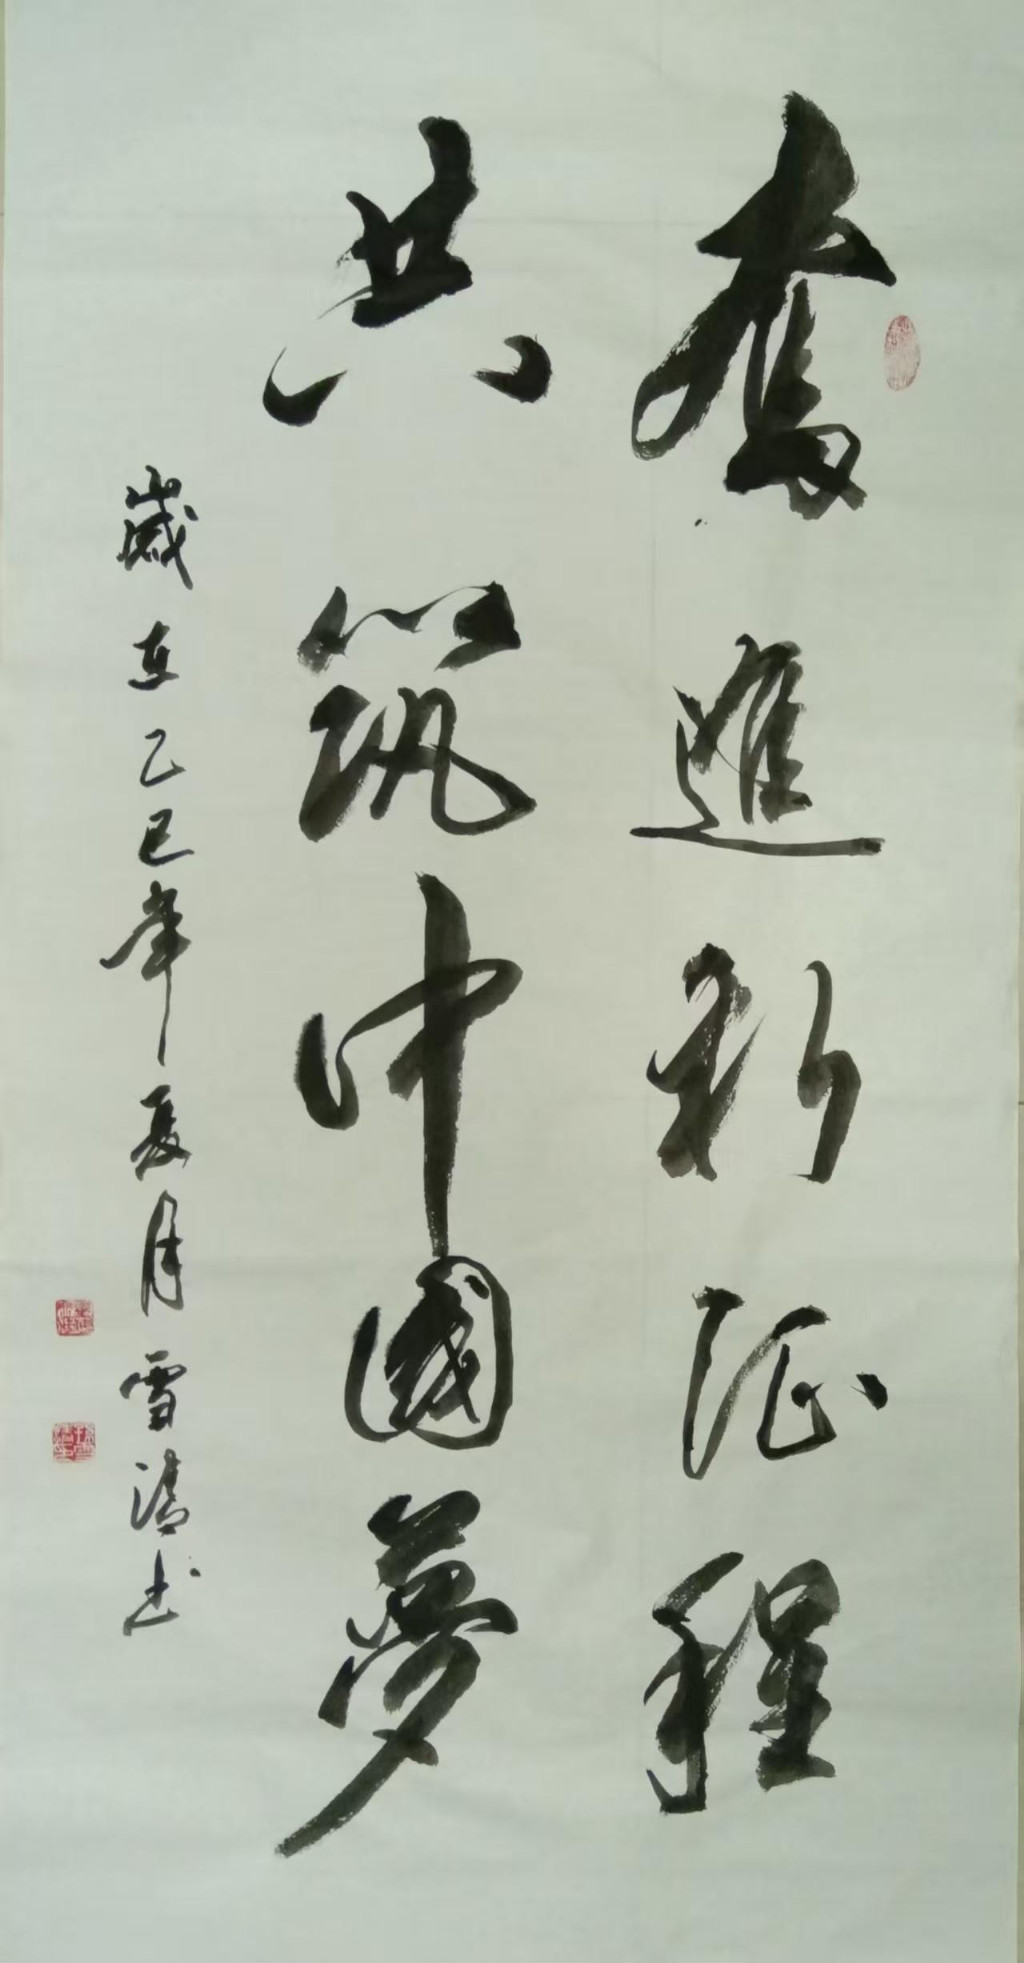 奮進新征程
共筑中國夢
歲在乙巳年夏月雪清書